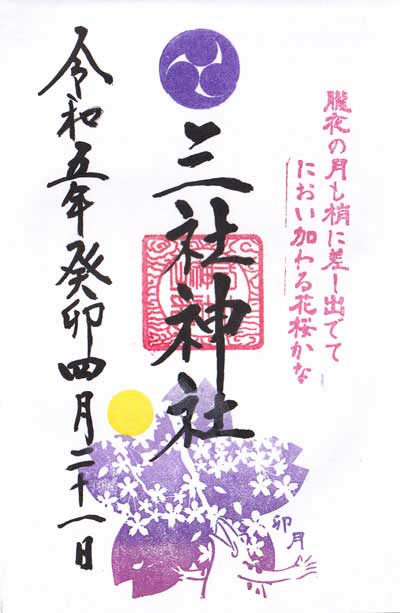 朧夜の月も梢に差し出でて
におい加わる花桜かな
三社神社
令和五年癸卯四月二十一日
卯月